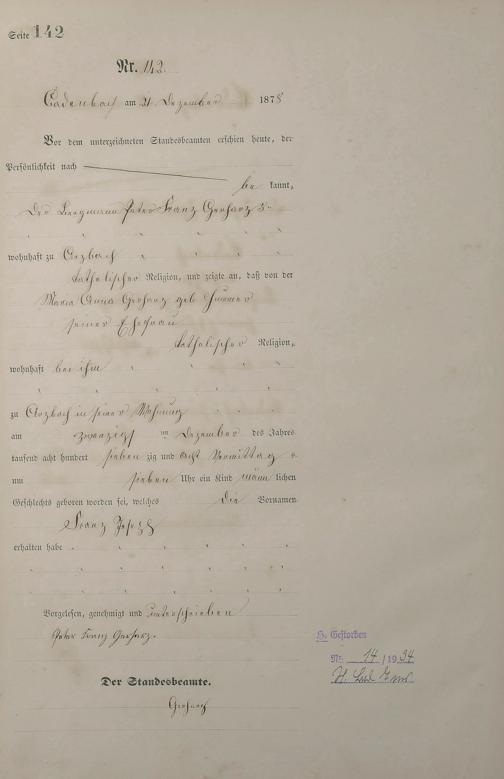 Seite 142
Nr. 142.
Cadenbach am 21 Dezember 1878
Vor dem unterzeichneten Standesbeamten erschien heute, der
Persönlichkeit nach
be kannt,
Der Bergmann Peter Franz Gerharz
wohnhaft zu Arzbach
katholischer Religion, und zeigte an, daß von der
Maria Anna Gerharz geb
seiner Ehefrau
katholischer Religion,
wohnhaft bei ihm
zu Arzbach in seiner Wohnung
am zwanzigst en Dezember des Jahres
tausend acht hundert sieben zig und acht Vormittags
um sieben Uhr ein Kind männ lichen
Geschlechts geboren worden sei, welches die Vornamen
Franz Josef
erhalten habe
Vorgelesen, genehmigt und unterschrieben
Peter Franz Gerharz.
H. Gestorben
Nr. 14 / 1934
Der Standesbeamte.